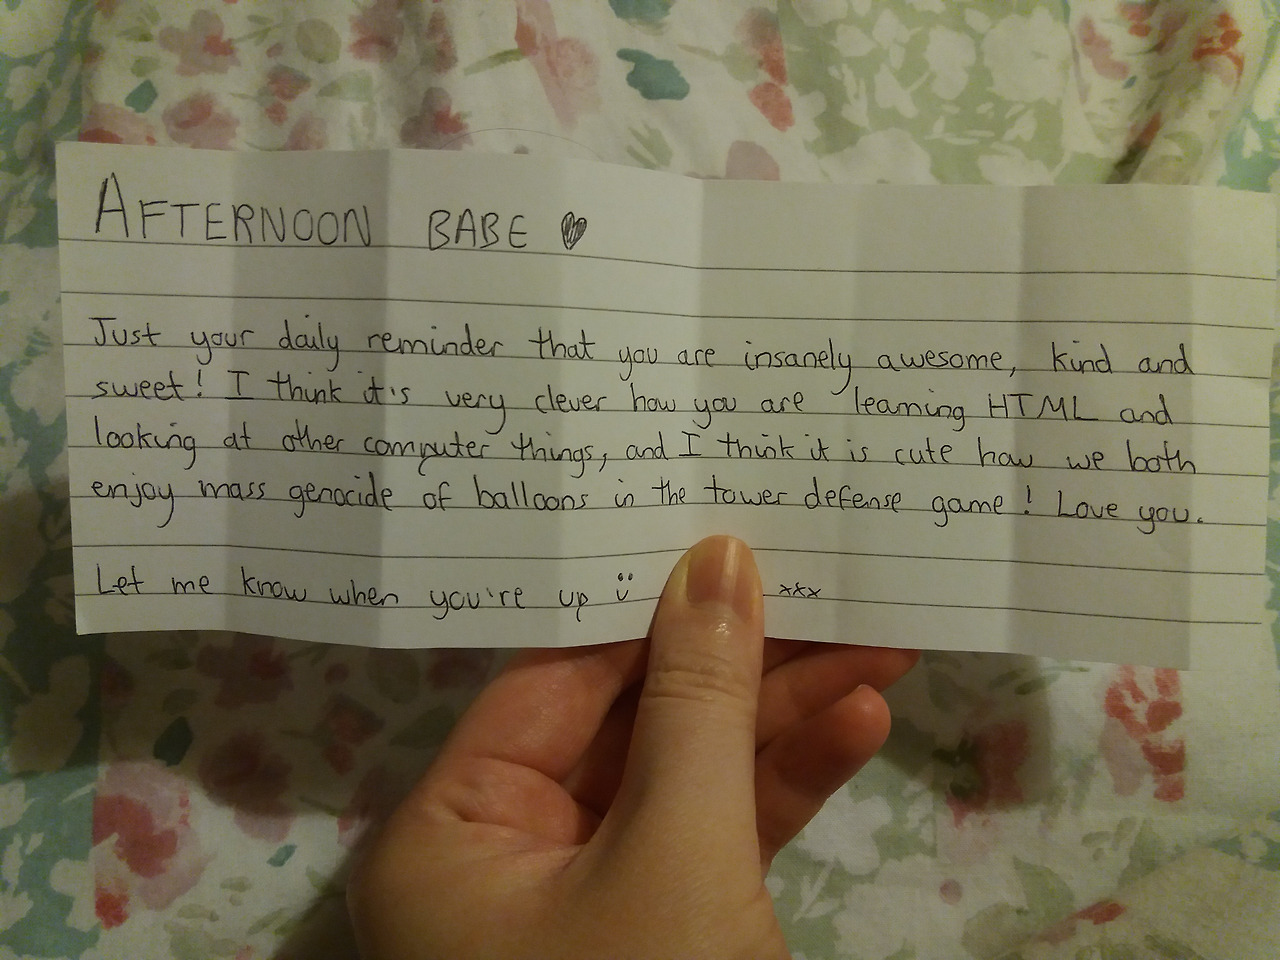 AFTERNOON BABE ♥
Just your daily reminder that you are insanely awesome, kind and
sweet! I think it's very clever how you are learning HTML and
looking at other computer things, and I think it is cute how we both
enjoy mass genocide of balloons in the tower defense game! Love you.
Let me know when you're up ü xxx